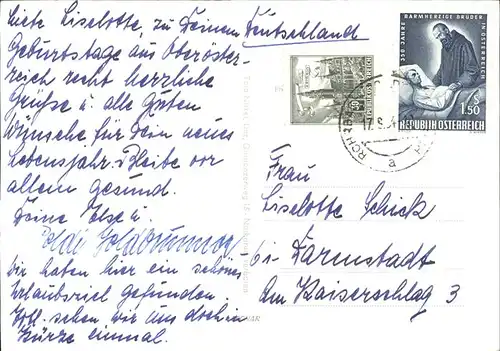 Liebe Liselotte, zu Deinem
Geburtstage aus Oberöster-
reich recht herzliche
Grüße u. alle Guten
Wünsche für Dein neues
Lebensjahr. Bleibe vor
allem gesund.
Deine Else u.
Poldi
Wir haben hier ein schönes
Urlaubsziel gefunden.
sehen wir uns doch in
Kürze einmal.
Deutschland
REPUBLIK ÖSTERREICH
350 JAHRE
BARMHERZIGE BRÜDER
IN ÖSTERREICH
1.50
REPUBLIK ÖSTERREICH
a
Frau
Liselotte Schick
bi- Darmstadt
Am Kaiserschlag 3